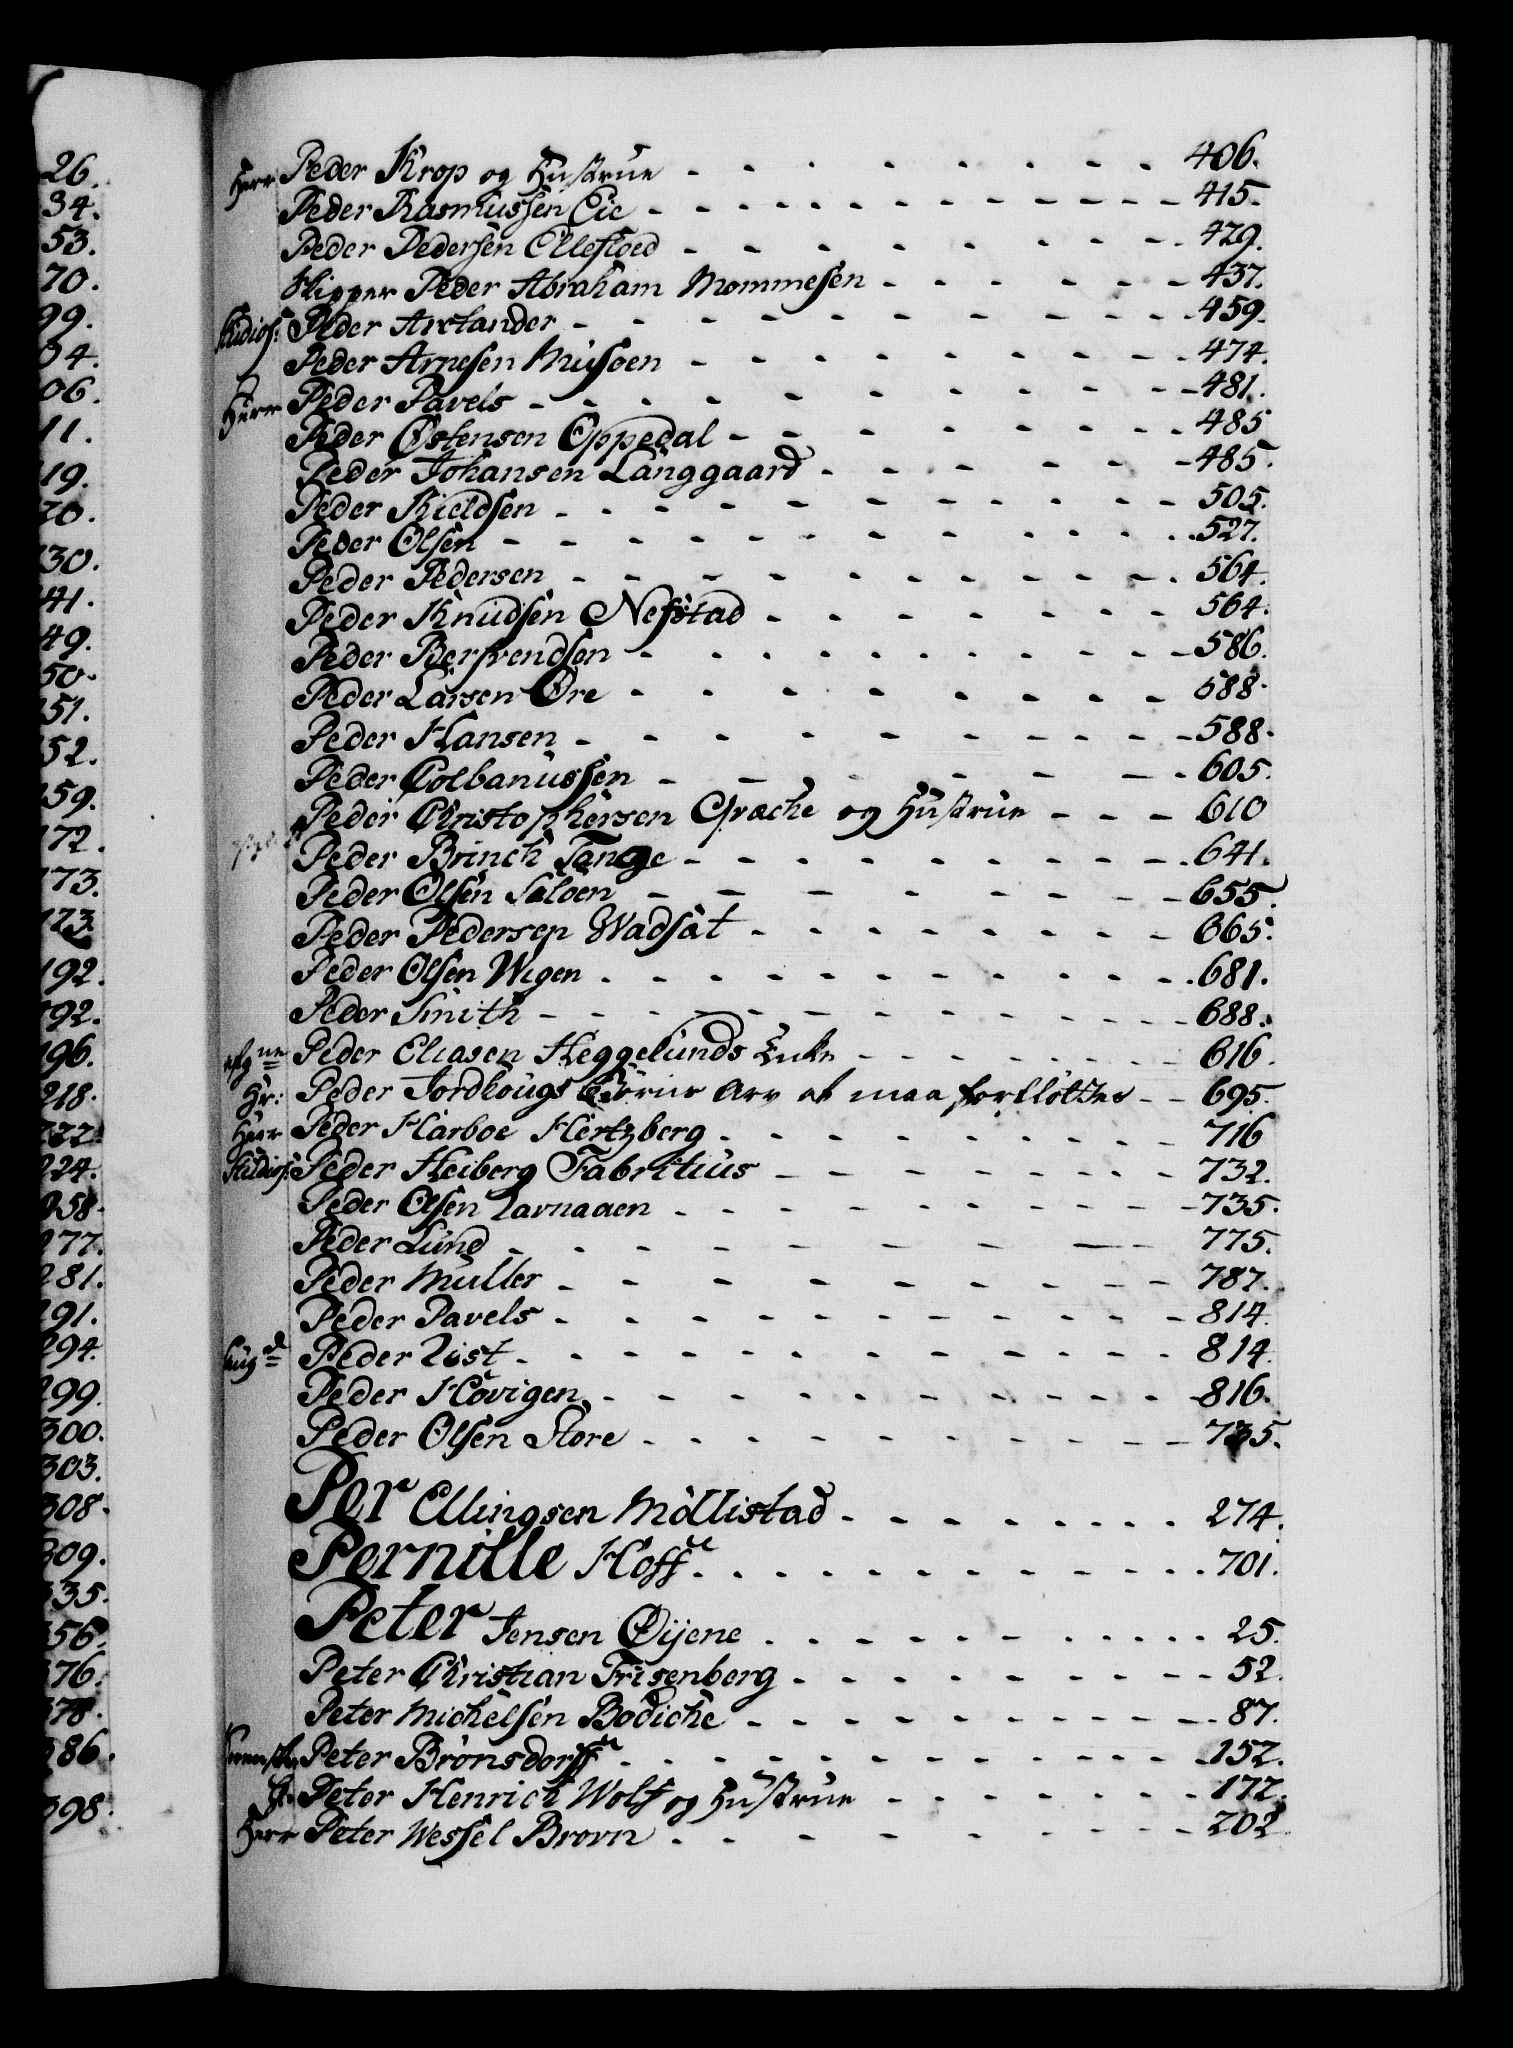 26.
34.
53.
70.
99.
04.
06.
11.
19.
20.
30.
41.
49.
50.
51.
52.
59.
72.
73.
173.
192.
192.
196.
218.
222.
224.
258.
277.
281.
291.
294.
299.
300.
303.
308.
309.
335.
356.
376.
378.
386.
398.
Herr Peder Krop og Hustrue - - - - - - - 406.
Peder Rasmussen Eie - - - - - - - 415.
Peder Pedersen Ellefsoed - - - - - - - 429.
Skipper Peder Abraham Mommesen - - - - - 437.
Studios: Peder Arctander - - - - - - - 459.
Peder Arnesen Musoen - - - - - - - 474.
Herr Peder Pavels - - - - - - - 481.
Peder Østensen Oppedal - - - - - - - 485
Peder Johansen Langgaard - - - - - - 485.
Peder Kieldsen - - - - - - - 505.
Peder Olsen - - - - - - - 527.
Peder Pedersen - - - - - - - 564.
Peder Knudsen Nefstad - - - - - - - 564.
Peder Bersvendsen - - - - - - - 586.
Peder Larsen Øre - - - - - - - 588.
Peder Hansen - - - - - - - 588.
Peder Colbanussen - - - - - - - 605.
Peder Christophersen Græche og Hustrue - - - 610
Peder Brinch Tange - - - - - - - 641.
Peder Olsen Saloen - - - - - - - 655.
Peder Pedersen Wadsåt - - - - - - - 665.
Peder Olsen Wigen - - - - - - - 681.
Peder Smith - - - - - - - 688.
Peder Eliasen Heggelunds Enke - - - - - - 616.
Hr: Peder Jordhougs Børns Arv at maa forfløttes - - 695.
Herr Peder Harboe Hertzberg - - - - - - - 716
Studios: Peder Heiberg Fabritius - - - - - - - 732.
Peder Olsen Tarnaaen - - - - - - - 735.
Peder Lund - - - - - - - 775.
Peder Müller - - - - - - - 787.
Peder Pavels - - - - - - - 814.
Laugd Peder List - - - - - - - 814.
Peder Hovigen - - - - - - - 816.
Peder Olsen Store - - - - - - - 735.
Per Ellingsen Mollistad - - - - - - - 274.
Pernille Hoff - - - - - - - 701.
Peter Jensen Øijene - - - - - - - 25.
Peter Christian Frisenberg - - - - - - - 52.
Peter Michelsen Bodiche - - - - - - - 87.
Peter Brønsdorff - - - - - - - 152.
Hr. Peter Henrich Wolf og Hustrue - - - - - 172.
Herr Peter Wessel Brovn - - - - - - - 202.